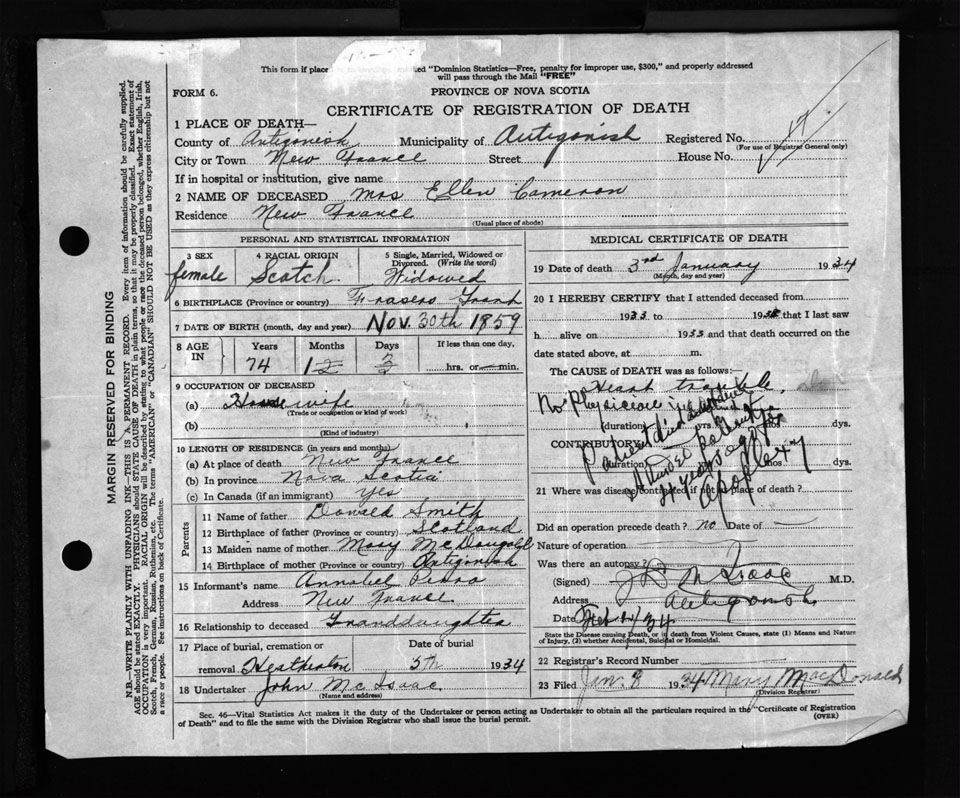 This form if place ated "Dominion Statistics—Free, penalty for improper use, $300," and properly addressed
will pass through the Mail "FREE"
FORM 6.
PROVINCE OF NOVA SCOTIA
CERTIFICATE OF REGISTRATION OF DEATH
1 PLACE OF DEATH—
County of Antigonish Municipality of Antigonish Registered No.
(For use of Registrar General only)
City or Town New France Street House No.
If in hospital or institution, give name
2 NAME OF DECEASED Mrs Ellen Cameron
Residence New France
(Usual place of abode)
PERSONAL AND STATISTICAL INFORMATION
3 SEX
female
4 RACIAL ORIGIN
Scotch
5 Single, Married, Widowed or
Divorced. (Write the word)
Widowed
6 BIRTHPLACE (Province or country) Frasers Grant
7 DATE OF BIRTH (month, day and year) Nov. 30th 1859
8 AGE IN
Years Months Days If less than one day,
74 3 hrs. or min.
9 OCCUPATION OF DECEASED
(a) Housewife
(Trade or occupation or kind of work)
(b)
(Kind of industry)
10 LENGTH OF RESIDENCE (in years and months)
(a) At place of death New France
(b) In province Nova Scotia
(c) In Canada (if an immigrant) Yes
Parents
11 Name of father Donald Smith
12 Birthplace of father (Province or country) Scotland
13 Maiden name of mother Mary McDougald
14 Birthplace of mother (Province or country) Antigonish
15 Informant's name Annabel
Address New France
16 Relationship to deceased Granddaughter
17 Place of burial, cremation or Date of burial
removal Heatherton 5th 1934
18 Undertaker John McIsaac
(Name and address)
MEDICAL CERTIFICATE OF DEATH
19 Date of death 3rd January 1934
(Month, day and year)
20 I HEREBY CERTIFY that I attended deceased from
1933 to 193 that I last saw
h alive on 1933 and that death occurred on
date stated above, at m.
The CAUSE of DEATH was as follows:—
Heart trouble
No Physician in attendance
patient died
(duration) yrs. ds.
CONTRIBUTORY
(duration) mos. dys.
2 years ago
apoplexy
21 Where was disease contracted if not at place of death?
Did an operation precede death? no Date of
Nature of operation
Was there an autopsy?
(Signed) M.D.
Address Antigonish
Date Feb 34
State the Disease causing Death, or if death from Violent Causes, state (1) Means and Nature
of Injury, (2) whether Accidental, Suicidal or Homicidal.
22 Registrar's Record Number
23 Filed Jan. 8 1934 Mary MacDonald
(Division Registrar)
Sec. 46—Vital Statistics Act makes it the duty of the Undertaker or person acting as Undertaker to obtain all the particulars required in the "Certificate of Registration
of Death" and to file the same with the Division Registrar who shall issue the burial permit.
(OVER)
MARGIN RESERVED FOR BINDING
N.B.—WRITE PLAINLY WITH UNFADING INK—THIS IS A PERMANENT RECORD. Every item of information should be carefully supplied.
AGE should be stated EXACTLY. PHYSICIANS should STATE CAUSE OF DEATH in plain terms, so that it may be properly classified. Exact statement of
OCCUPATION is very important. RACIAL ORIGIN will be described by stating to what people or race the deceased person belonged, whether English, Irish,
Scotch, French, German, Russian, Ruthenian, etc. The terms "AMERICAN" or "CANADIAN" SHOULD NOT BE USED as they express citizenship but not
a race or people. See instructions on back of Certificate.